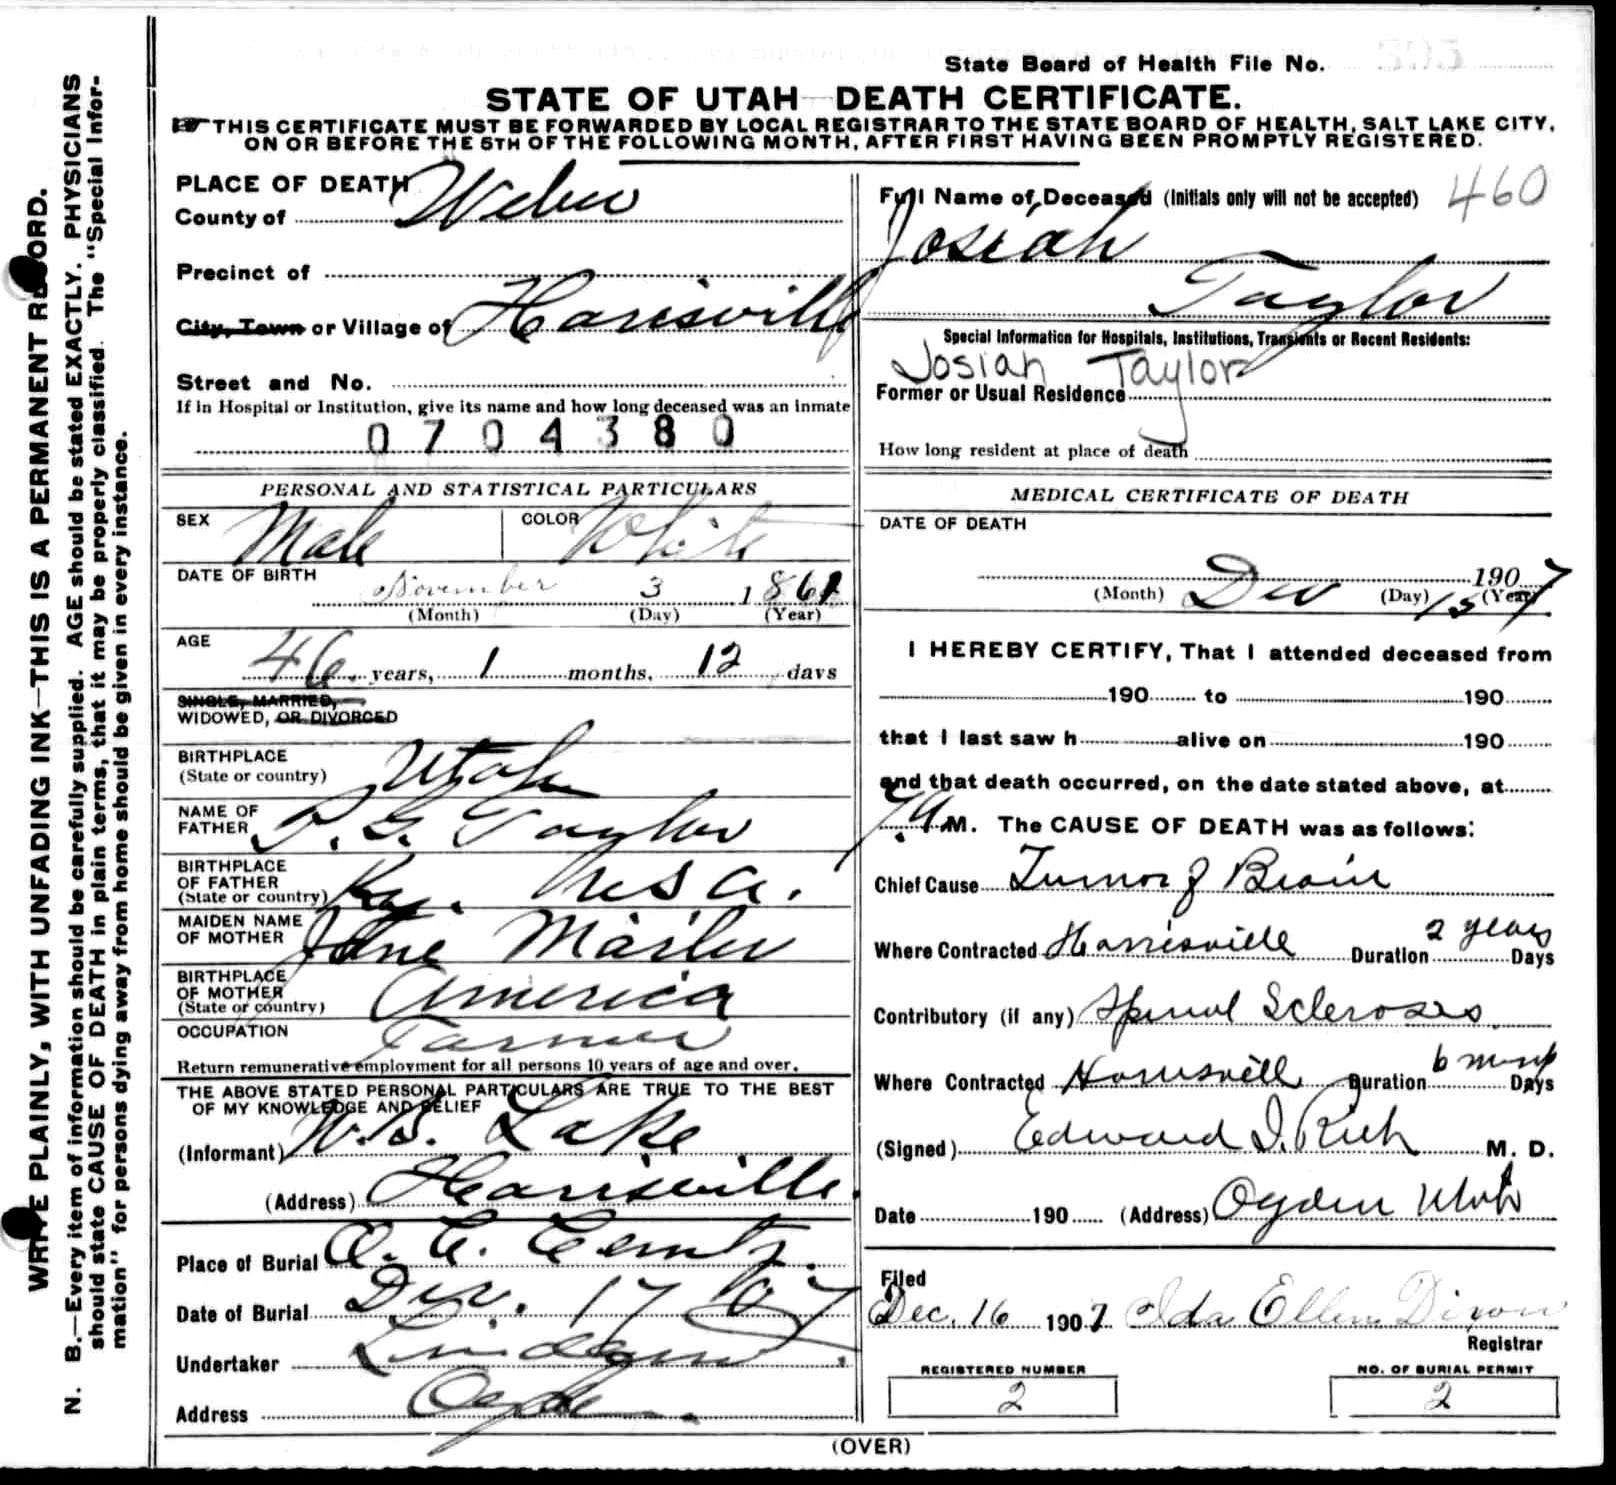 State Board of Health File No.
STATE OF UTAH—DEATH CERTIFICATE.
THIS CERTIFICATE MUST BE FORWARDED BY LOCAL REGISTRAR TO THE STATE BOARD OF HEALTH, SALT LAKE CITY,
ON OR BEFORE THE 5TH OF THE FOLLOWING MONTH, AFTER FIRST HAVING BEEN PROMPTLY REGISTERED.
WRITE PLAINLY, WITH UNFADING INK—THIS IS A PERMANENT RECORD.
N. B.—Every item of information should be carefully supplied. AGE should be stated EXACTLY. PHYSICIANS
should state CAUSE OF DEATH in plain terms, that it may be properly classified. The "Special Infor-
mation" for persons dying away from home should be given in every instance.
PLACE OF DEATH
County of Weber
Precinct of
City, Town or Village of Harisville
Street and No.
If in Hospital or Institution, give its name and how long deceased was an inmate
0704380
PERSONAL AND STATISTICAL PARTICULARS
SEX Male COLOR White
DATE OF BIRTH
November 3 1861
(Month) (Day) (Year)
AGE
46 years, 1 months, 12 days
SINGLE, MARRIED,
WIDOWED, OR DIVORCED
BIRTHPLACE
(State or country) Utah
NAME OF
FATHER P. G. Taylor
BIRTHPLACE
OF FATHER
(State or country) Ky. USA.
MAIDEN NAME
OF MOTHER Jane Marler
BIRTHPLACE
OF MOTHER
(State or country) America
OCCUPATION Farmer
Return remunerative employment for all persons 10 years of age and over.
THE ABOVE STATED PERSONAL PARTICULARS ARE TRUE TO THE BEST
OF MY KNOWLEDGE AND BELIEF
(Informant) W. B. Lake
(Address) Harisville.
Place of Burial
Date of Burial Dec. 17 07
Undertaker Lindquist
Address Ogden
Full Name of Deceased (Initials only will not be accepted) 460
Josiah
Taylor
Special Information for Hospitals, Institutions, Transients or Recent Residents:
Josiah Taylor
Former or Usual Residence
How long resident at place of death
MEDICAL CERTIFICATE OF DEATH
DATE OF DEATH
Dec 15 1907
(Month) (Day) (Year)
I HEREBY CERTIFY, That I attended deceased from
190 to 190
that I last saw h alive on 190
and that death occurred, on the date stated above, at
7 A M. The CAUSE OF DEATH was as follows:
Chief Cause Tumor of Brain
Where Contracted Harrisville Duration 2 years Days
Contributory (if any) Spinal Scleroses
Where Contracted Harrisvill Duration 6 months Days
(Signed) Edward I. Rich M. D.
Date 190 (Address) Ogden Utah
Filed
Dec. 16 1907 Ida Ellen Dixon
Registrar
REGISTERED NUMBER
2
NO. OF BURIAL PERMIT
2
(OVER)